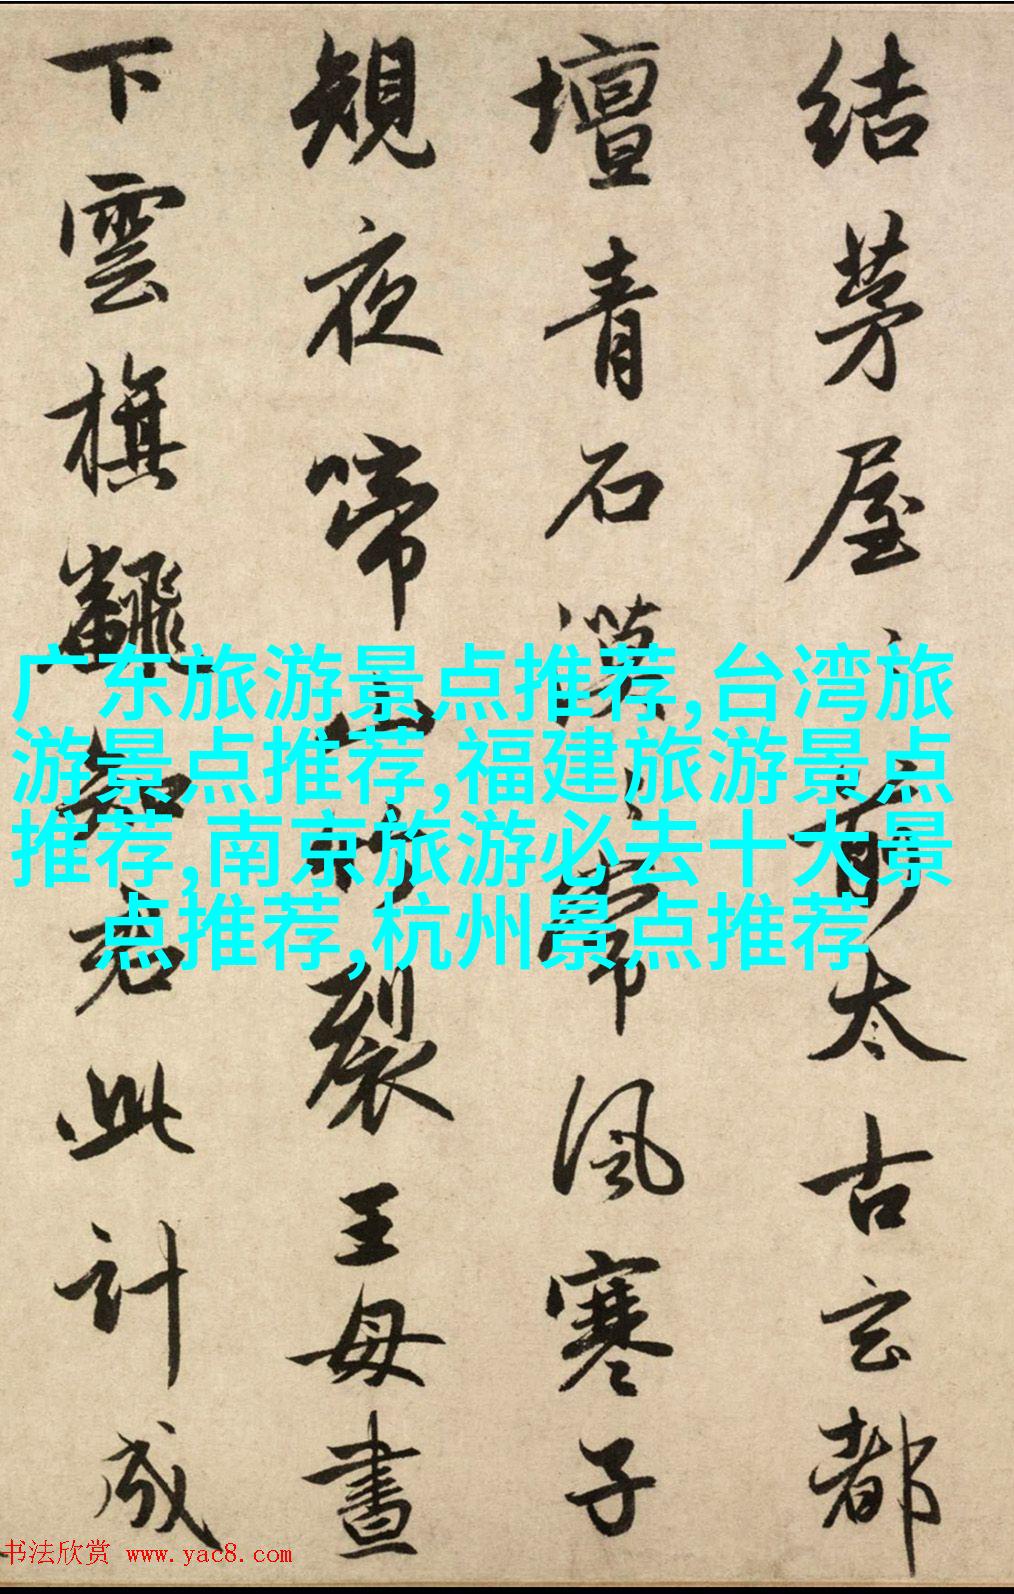 結茅屋〻前太古玄都
壇青石漠〻常風寒子
規夜啼山竹裂王母晝
下雲旗飜知君此計成
广东旅游景点推荐,台湾旅
游景点推荐,福建旅游景点
推荐,南京旅游必去十大景
点推荐,杭州景点推荐
书法欣赏 www.yac8.com